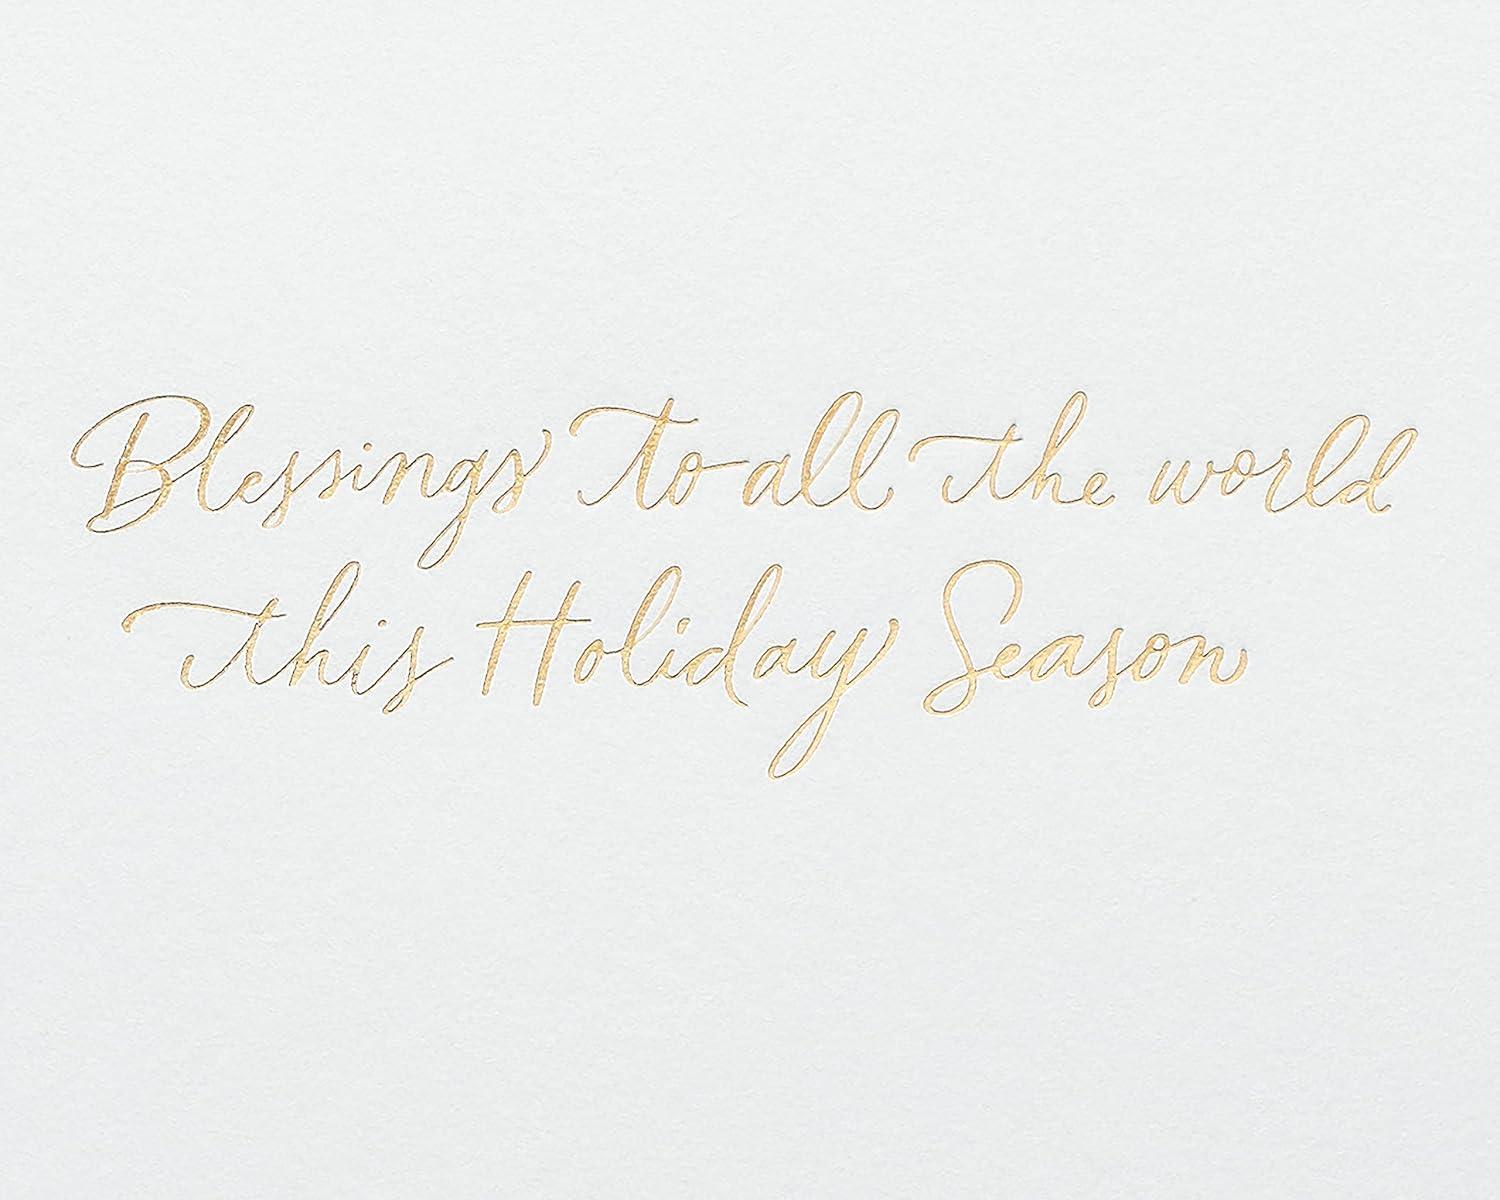 Blessings to all the world
this Holiday Season